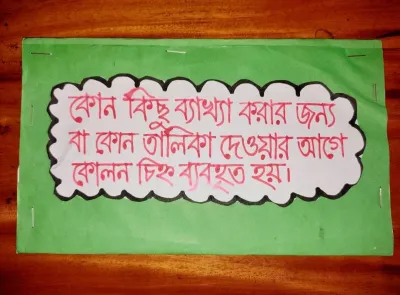 কোন কিছু ব্যাখ্যা করার জন্য
বা কোন তালিকা দেওয়ার আগে
কোলন চিহ্ন ব্যবহৃত হয়।